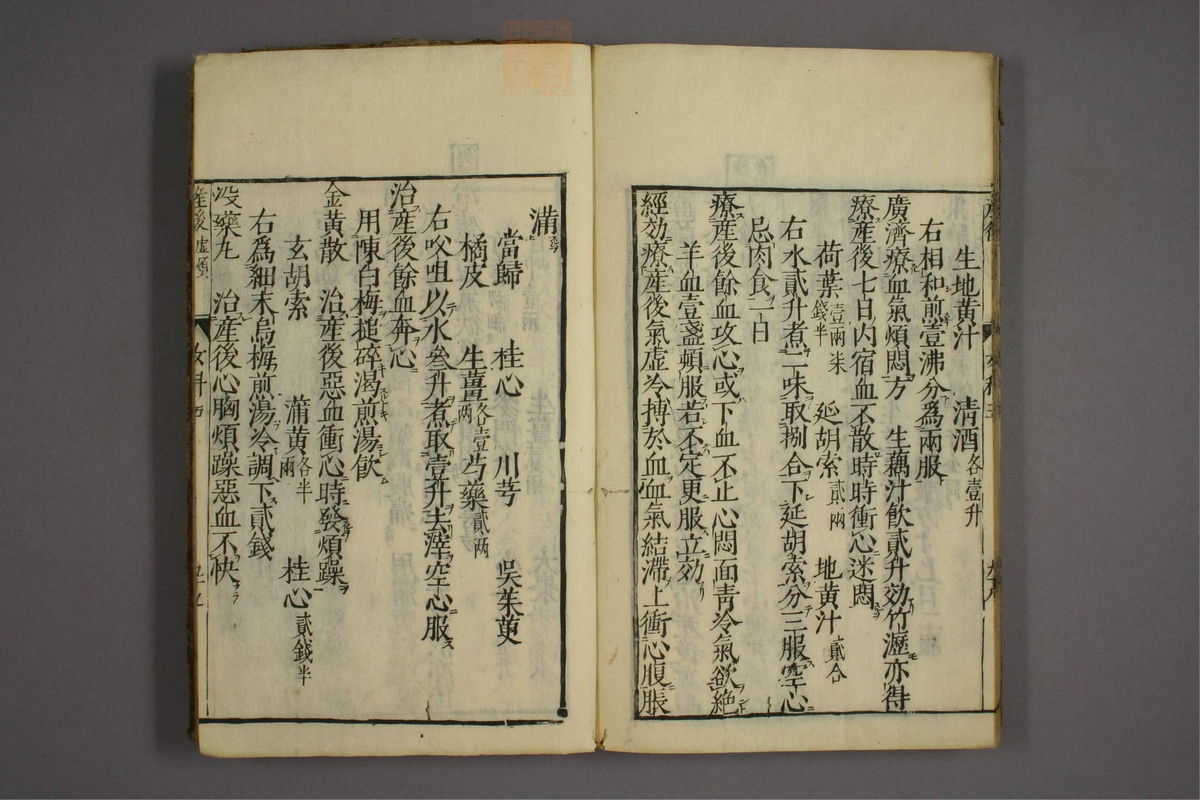 生地黄汁 清酒各壹升
右相和煎壹沸分為兩服
廣濟療血氣煩悶方 生藕汁飲貳升効竹瀝亦得
療産後七日内宿血不散時時衝心迷悶
荷葉壹兩柒錢半 延胡索貳兩 地黄汁貳合
右水貳升煮二味取捌合下延胡索分三服空心
忌肉食一日
療産後餘血攻心或下血不止心悶面青冷氣欲絶
羊血壹盞頓服若不定更服立効
經効療産後氣虚冷搏於血血氣結滯上衝心腹脹
滿
當歸 桂心 川芎 吳茱萸
橘皮 生薑各壹兩 芍藥貳兩
右㕮咀以水叄升煮取壹升去滓空心服
治産後餘血奔心
用陳白梅搥碎濃煎湯飲
金黄散 治産後惡血衝心時發煩躁
玄胡索 蒲黄各半兩 桂心貳錢半
右為細末烏梅煎湯冷調下貳錢
沒藥丸 治産後心胸煩躁惡血不快
産後虚煩 女科五